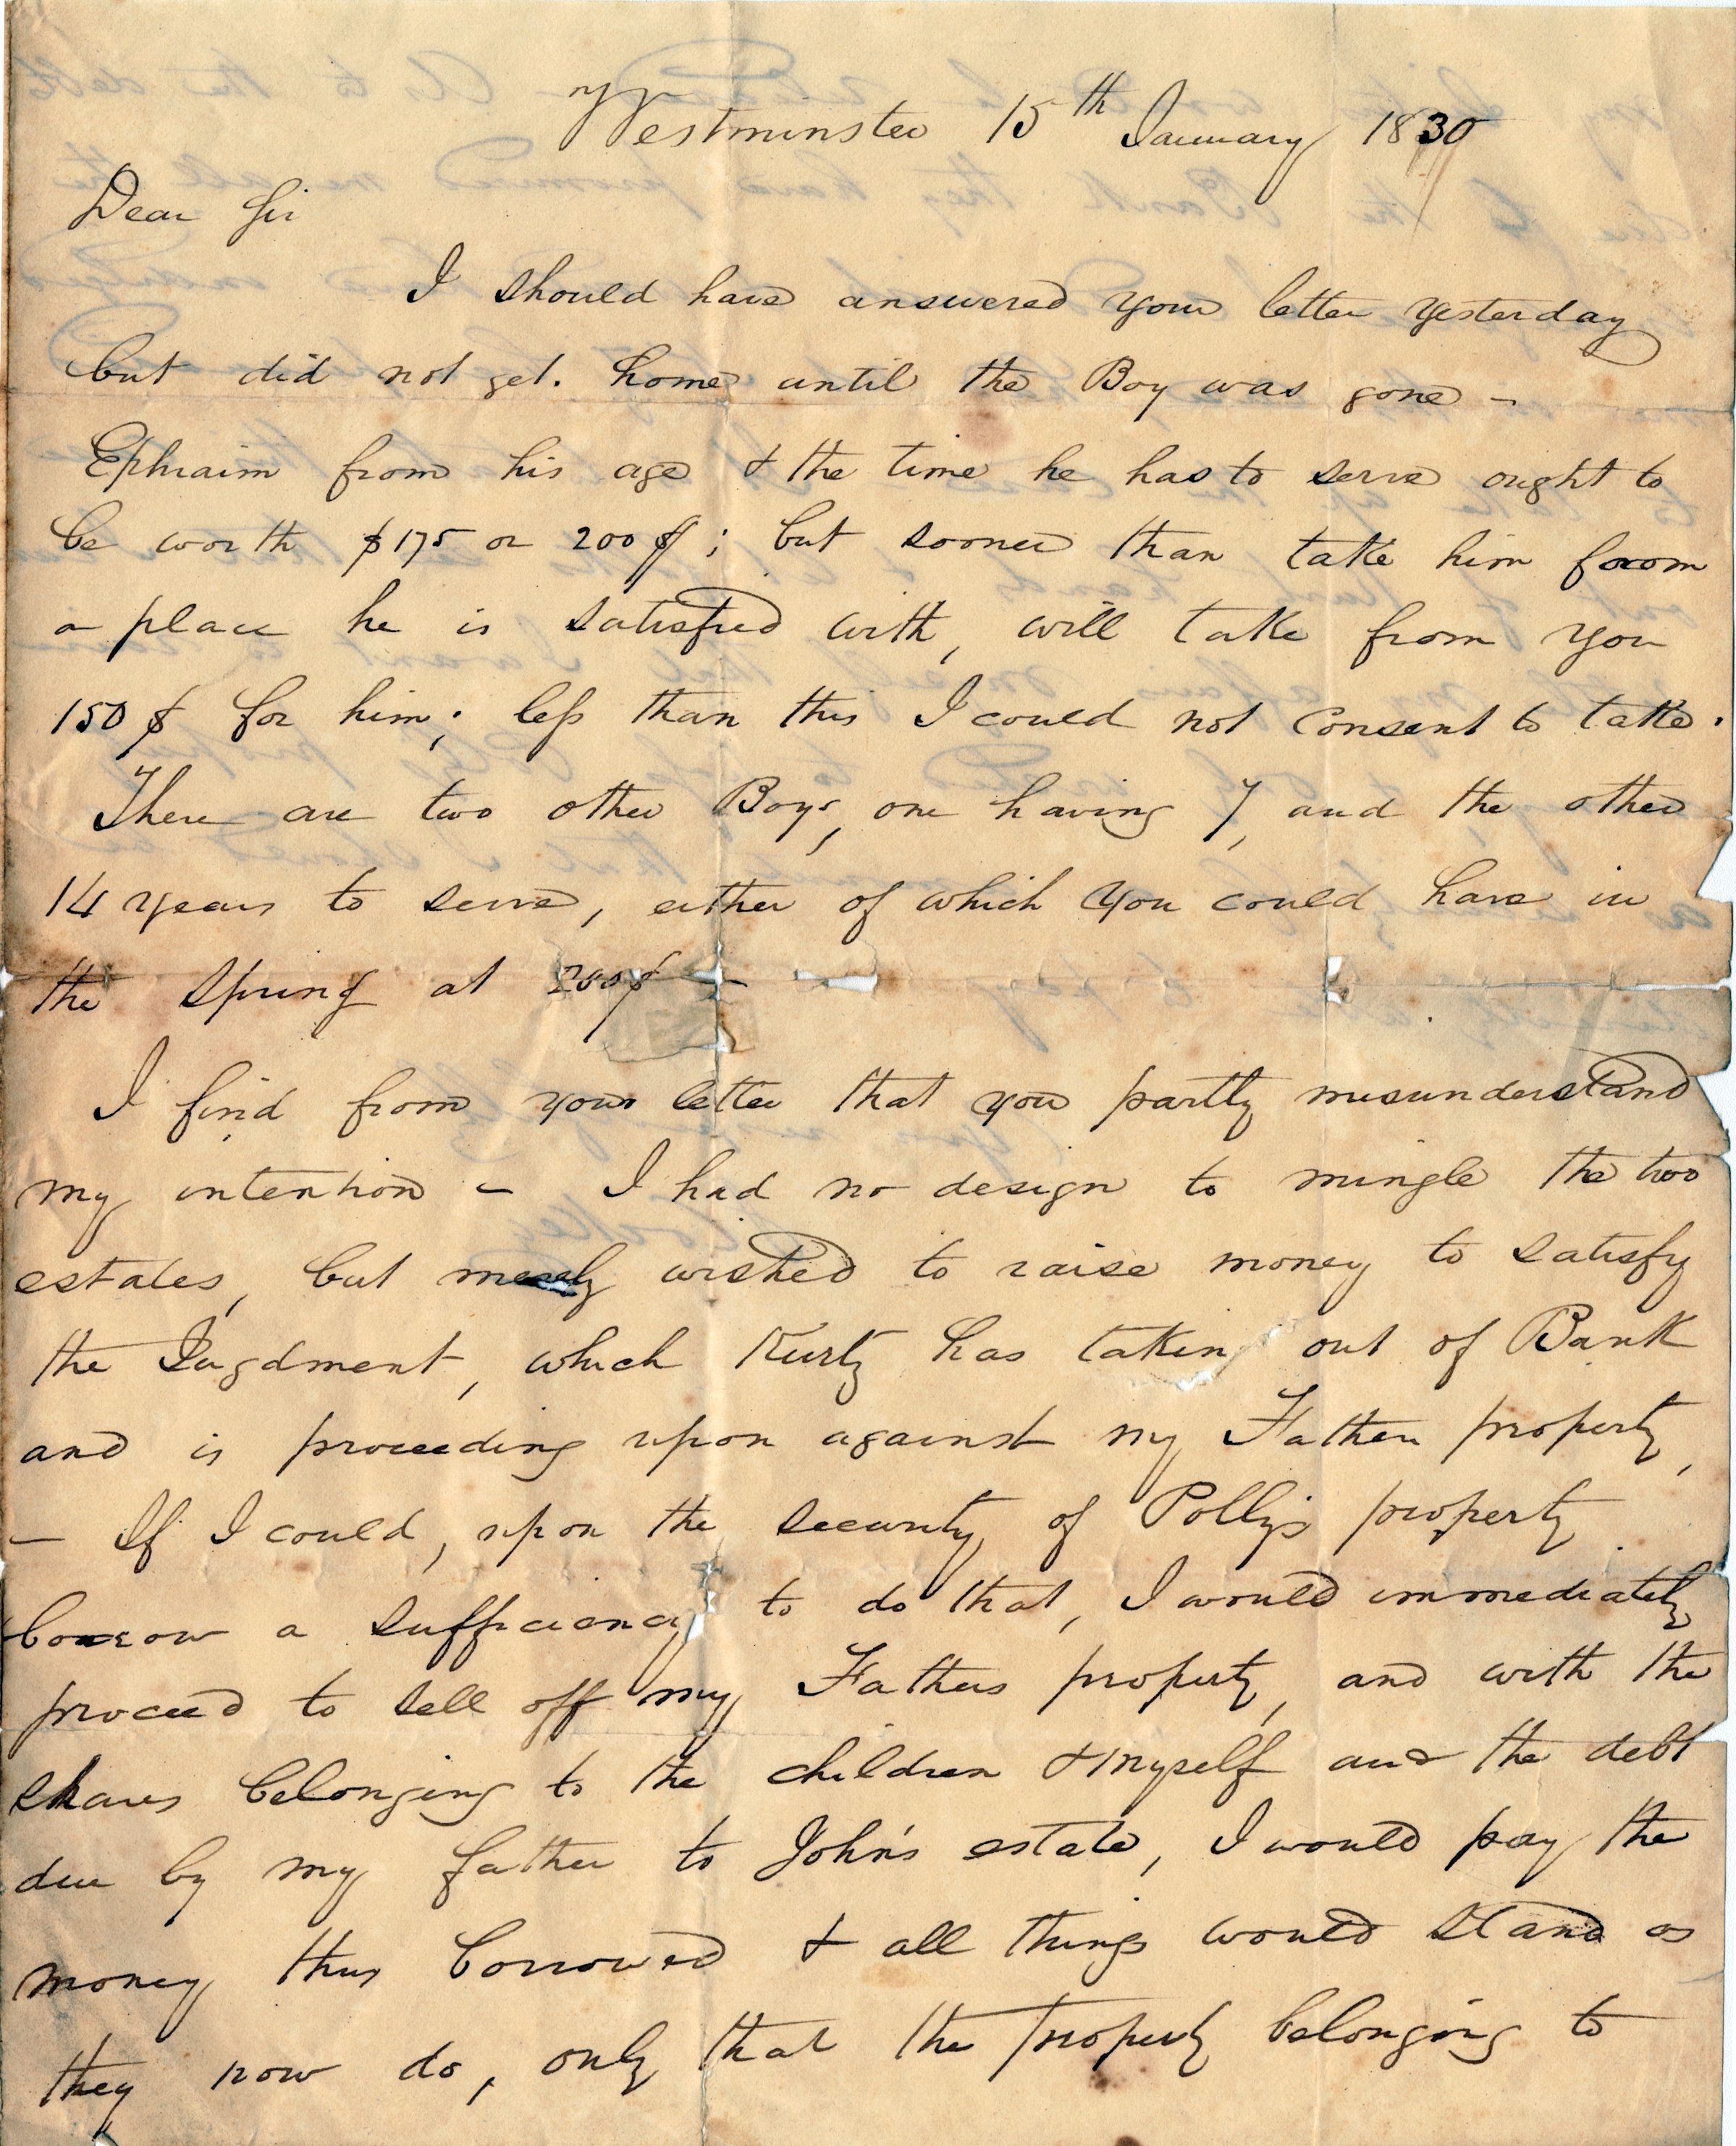 Westminster 15th January 1830
Dear Sir
I should have answered your letter yesterday
but did not get. home until the Boy was gone –
Ephraim from his age & the time he has to serve ought to
be worth $175 or 200$; but sooner than take him from
a place he is satisfied with, will take from you
150$ for him; less than this I could not consent to take.
There are two other Boys, one having 7, and the other
14 years to serve, either of which you could have in
the Spring at 200$ –
I find from your letter that you partly misunderstand
my intention – I had no design to mingle the two
estates, but merely wished to raise money to satisfy
the Jugdment, which Kurtz has taken out of Bank
and is proceeding upon against my Father property,
– If I could, upon the security of Polly's property
borrow a sufficiency to do that, I would immediately
proceed to sell off my Fathers property, and with the
shares belonging to the children & myself and the debt
due by my father to John's estate, I would pay the
money thus borrowed & all things would stand as
they now do, only that the property belonging to